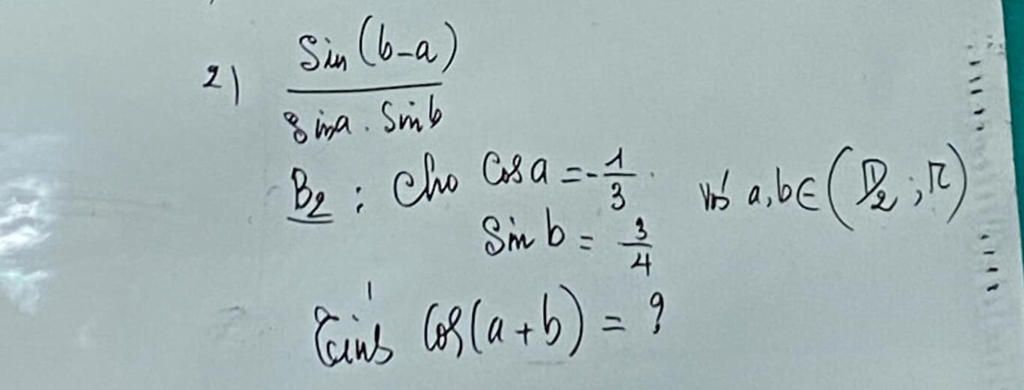 2) sin(b-a) / sina . sinb
B2 : Cho cosa = -1/3 với a,b∈(π/2 ; π)
sin b = 3/4
Tính cos(a+b) = ?